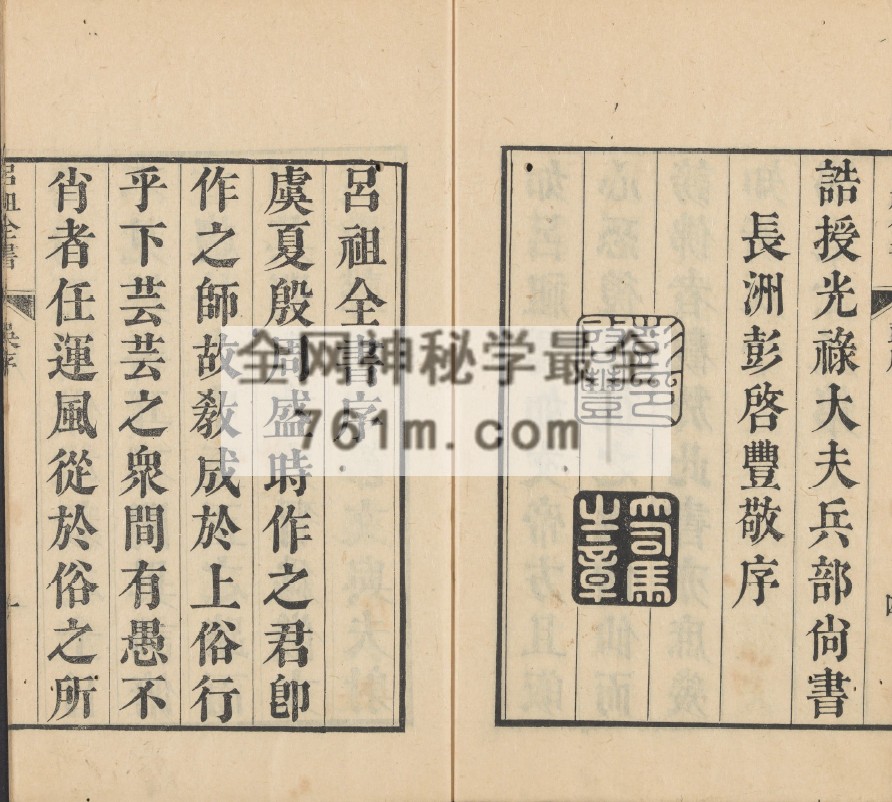 誥授光祿大夫兵部尙書
長洲彭啓豐敬序
司馬之章
呂祖全書序
虞夏殷周盛時作之君卽
作之師故敎成於上俗行
乎下芸芸之衆間有愚不
肖者任運風從於俗之所
呂祖全書
全网神秘学最全
761m.com